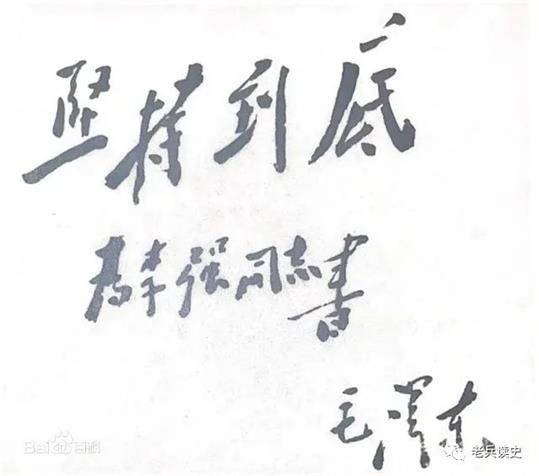 坚持到底
为李强同志书
毛泽东
Bai百科
老兵读史